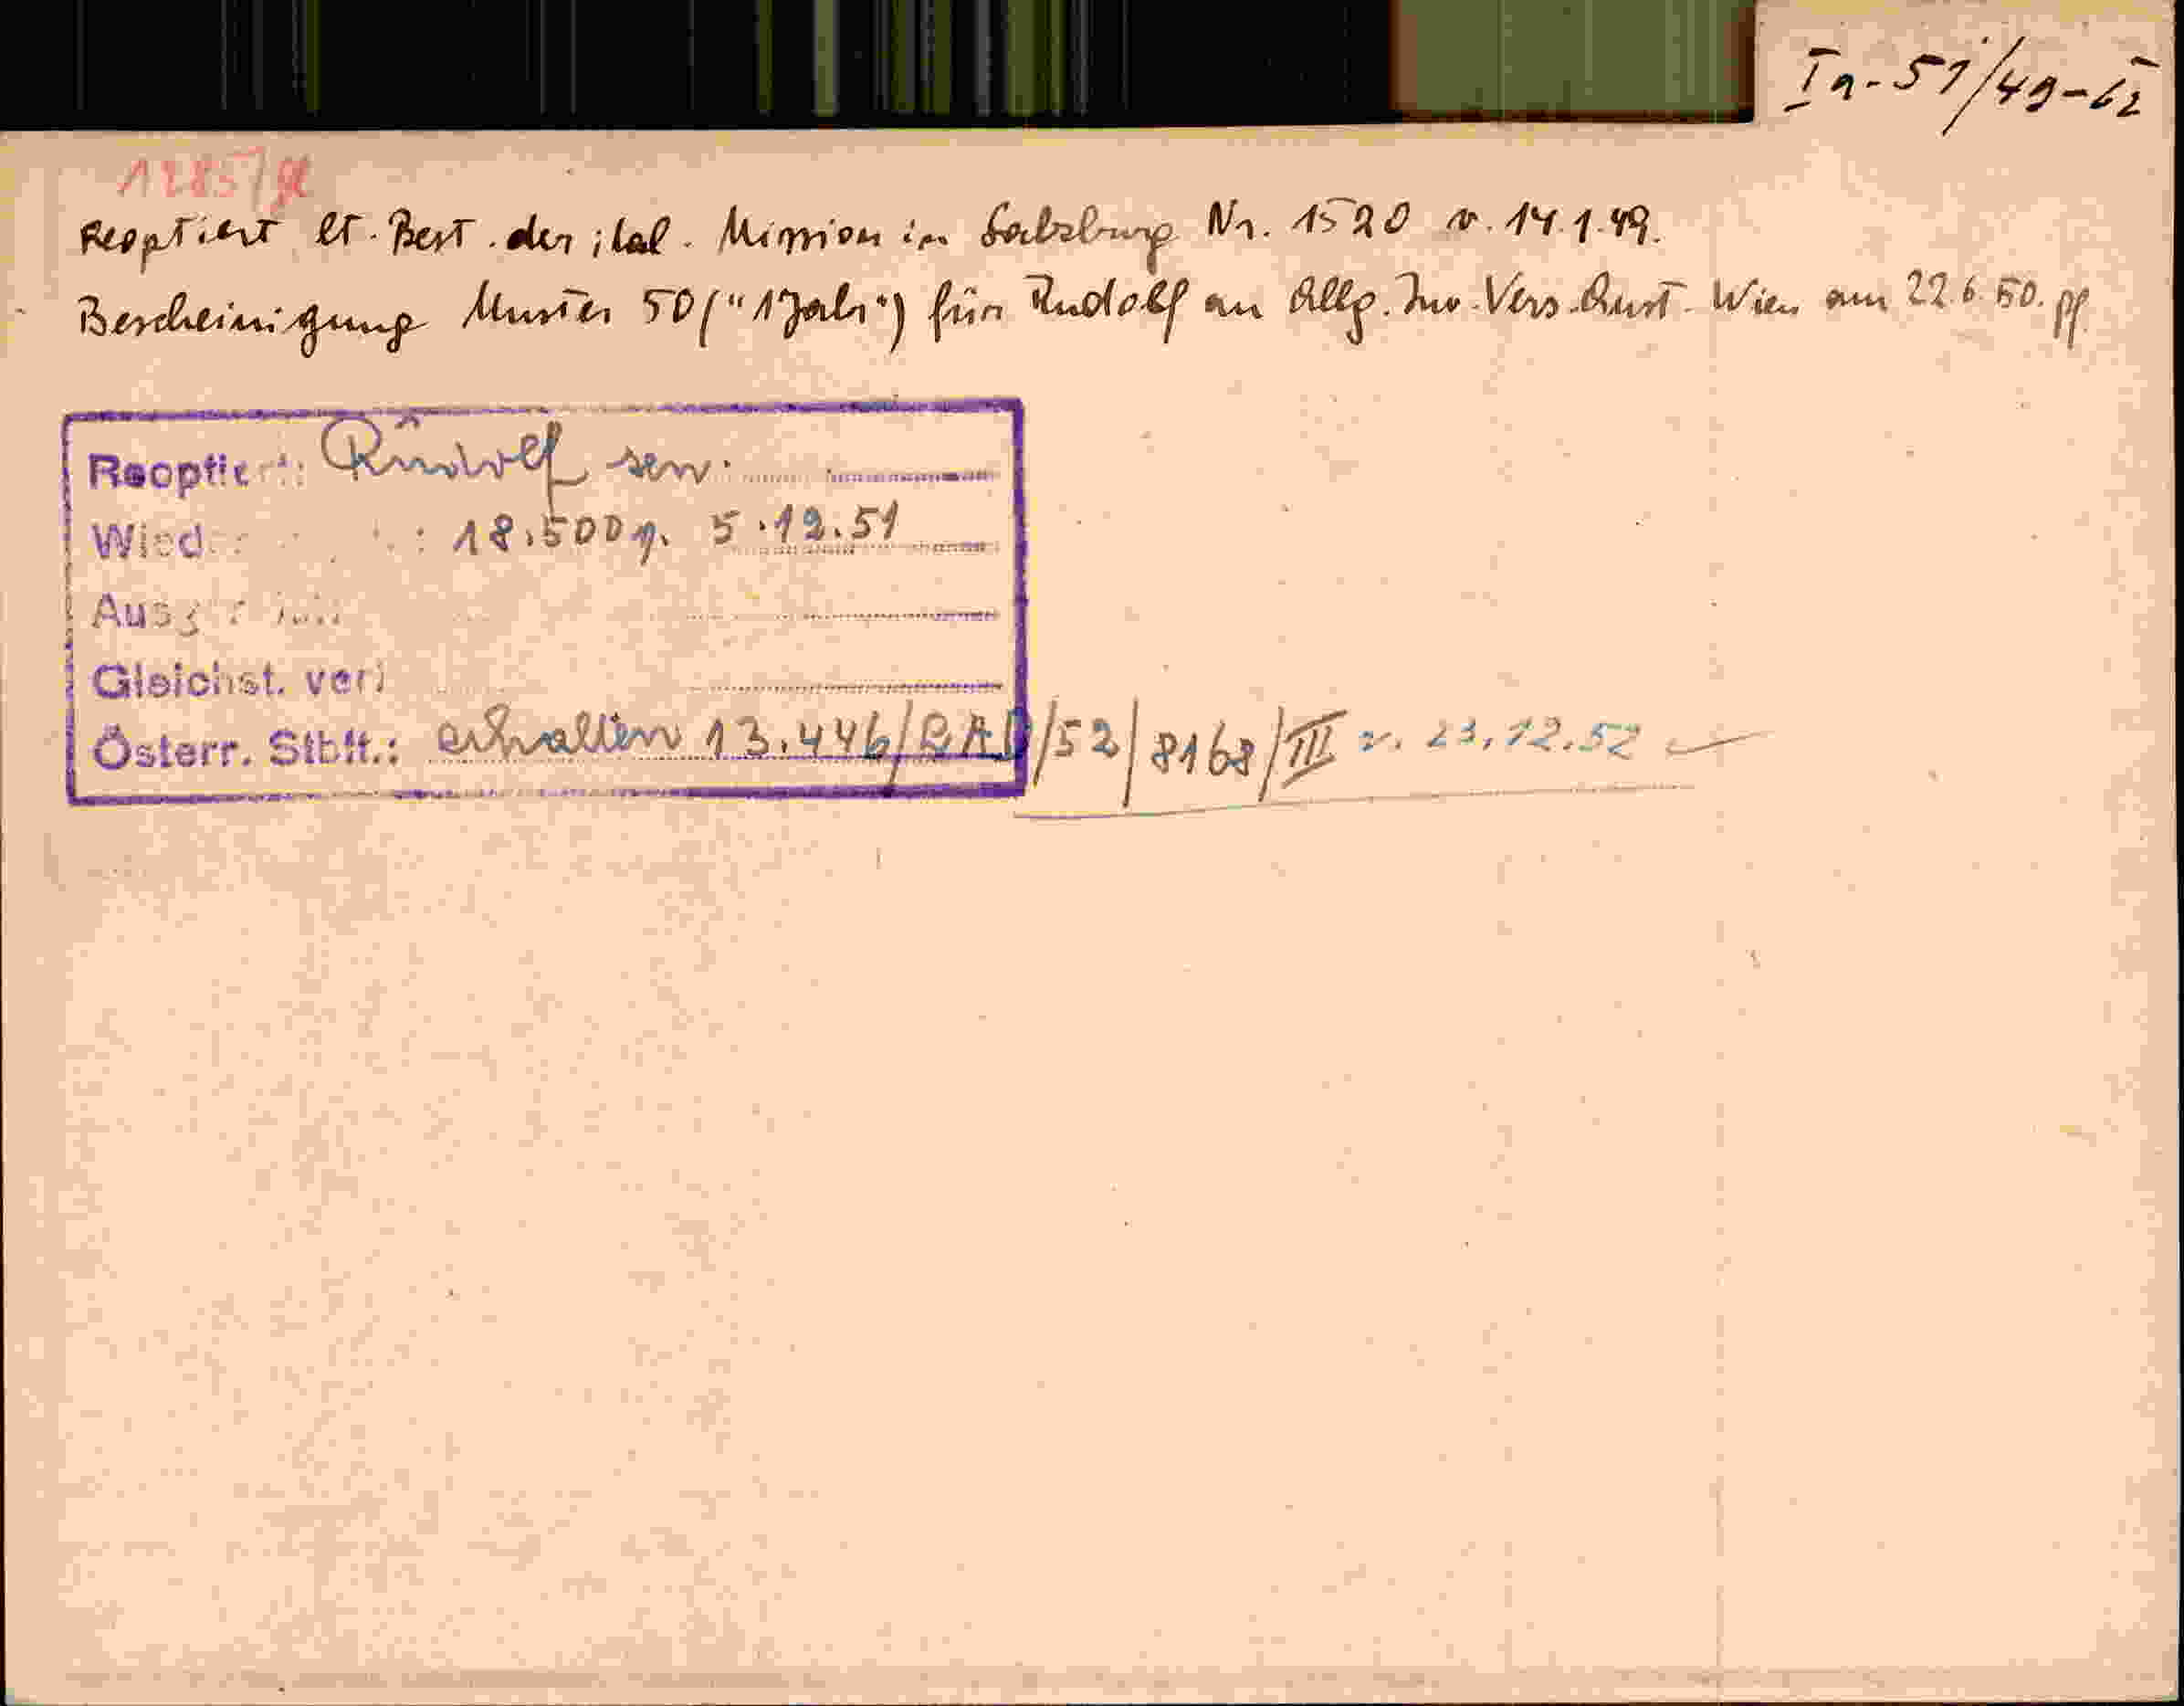 Ia-51/49-
1285/
Reoptiert lt. Best. der ital. Mission in Salzburg Nr. 1520 v. 14.1.49.
Bescheinigung Muster 50 ("1 Jahr") für Rudolf an Allg. Inv. Vers. Anst. Wien am 22.6.50. pf.
Reoptiert: Rudolf sen.
Wied : 18.500 5.12.51
Gleichst. verl
Österr. Stbft.: erhalten 13.446/BAD/52/8168/III v. 23.12.52